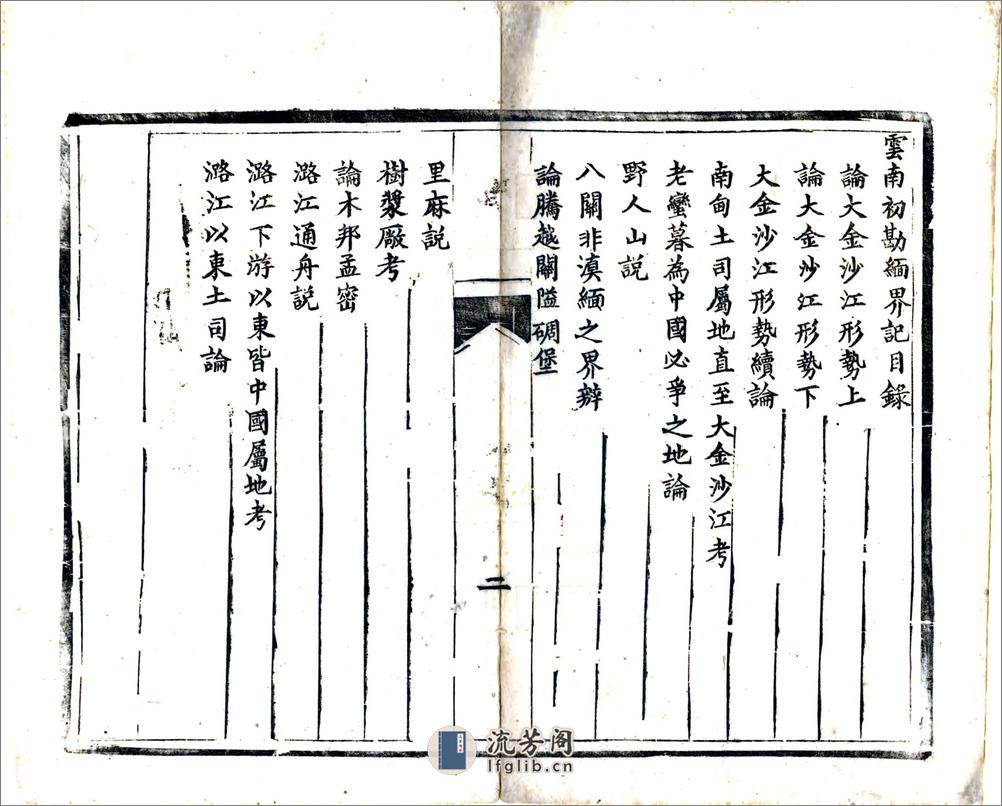 雲南初勘緬界記目錄
論大金沙江形勢上
論大金沙江形勢下
大金沙江形勢續論
南甸土司屬地直至大金沙江考
老蠻暮為中國必爭之地論
野人山説
八關非滇緬之界辯
論騰越關隘碉堡
二
里麻説
樹漿厰考
論木邦孟密
潞江通舟説
潞江下游以東皆中國屬地考
潞江以東土司論
流芳阁
lfglib.cn